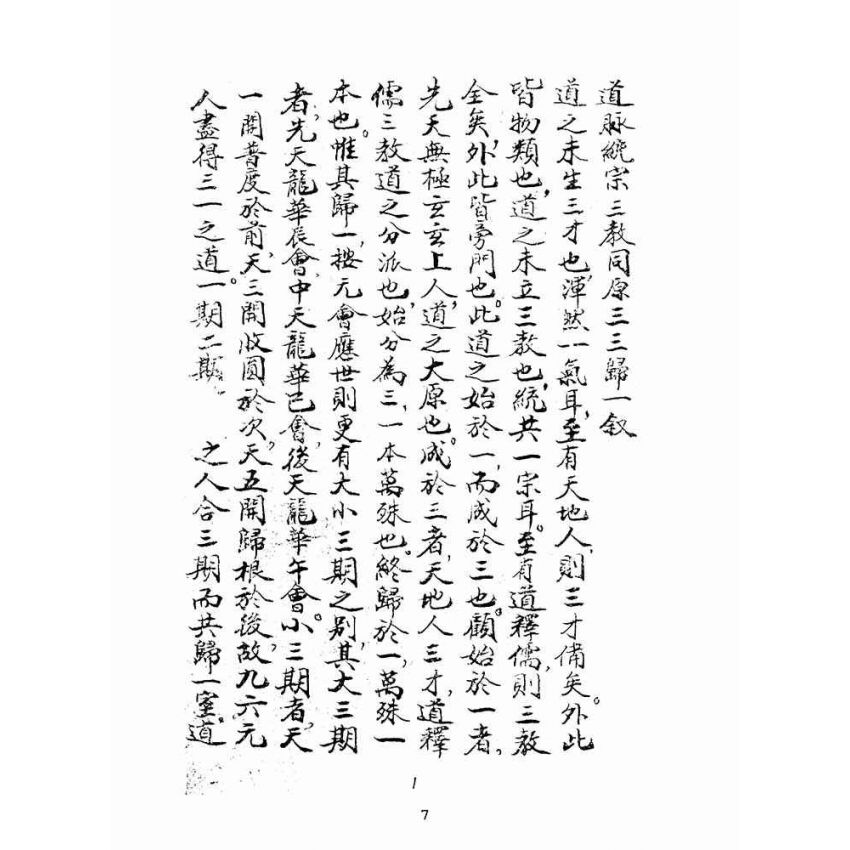 道脉統宗三教同原三三歸一叙
道之未生三才也,渾然一氣耳,至有天地人,則三才備矣。外此
皆物類也,道之未立三教也,統共一宗耳。至有道釋儒,則三教
全矣,外此皆旁門也。此道之始於一,而成於三也。顧始於一者,
先天無極玄玄上人,道之大原也。成於三者,天地人三才,道釋
儒三教道之分派也,始分為三,一本萬殊也。終歸於一,萬殊一
本也。惟其歸一,按元會應世則更有大小三期之别,其大三期
者,先天龍華辰會,中天龍華巳會,後天龍華午會。小三期者,天
一開普度於前,天三開收圓於次,天五開歸根於後,故九六元
人盡得三一之道。一期二期 之人合三期而共歸一室,道。
1
7